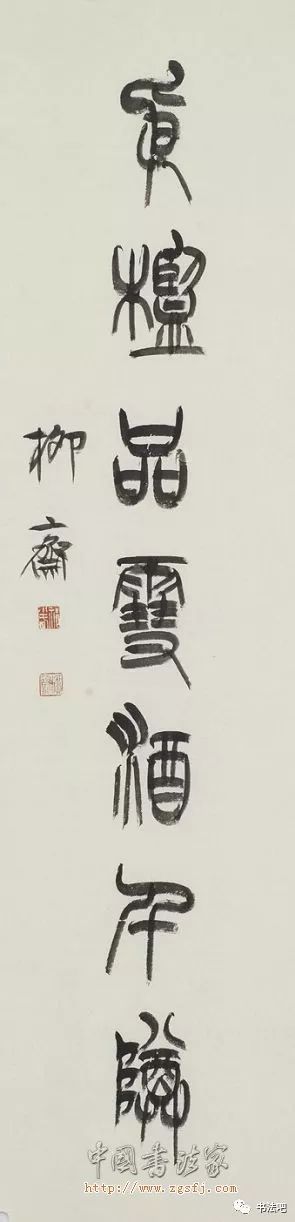 檻品雪酒千
柳齋
中國書法家
http://www.zgsfj.com/
书法吧